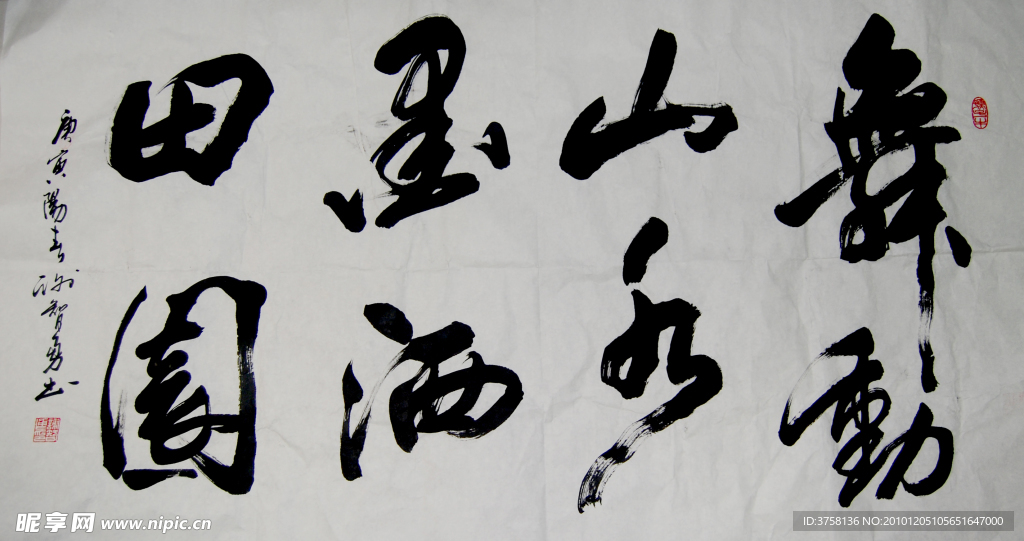 舞動
山水
墨洒
田園
庚寅陽春謝智勇书
昵享网 www.nipic.cn
ID:3758136 NO:20101205105651647000